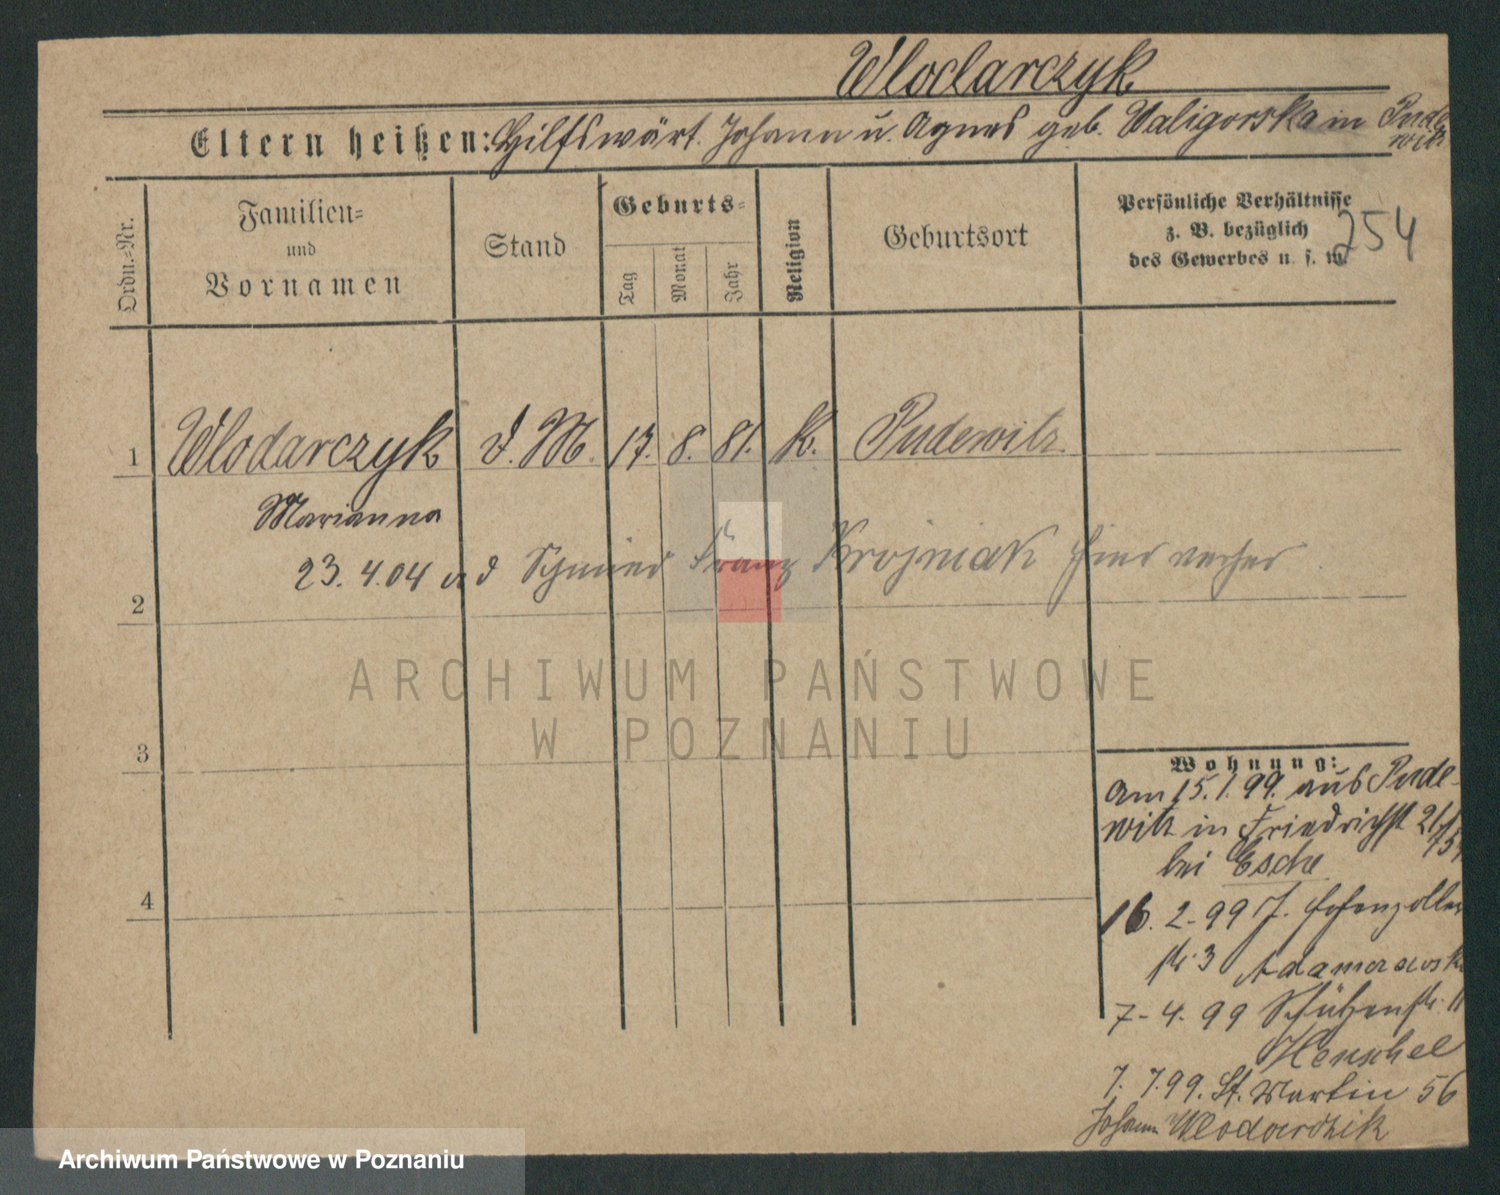 Wlodarczyk
Eltern heißen: Hilfswärt. Johann u. Agnes geb. Waligorska in Pude
witz
Ordn.-Nr.
Familien-
und
Vornamen
Stand
Geburts-
Tag
Monat
Jahr
Religion
Geburtsort
Persönliche Verhältnisse
z. B. bezüglich
des Gewerbes u. s. w.
254
1 Wlodarczyk d. M. 17. 8. 81. K. Pudewitz.
Marianna
23. 4. 04 Schmied Franz Krojniak hier verher
2
3
4
Wohnung:
am 15. 1. 99. aus Pude-
witz in Friedrichst 21/
bei Esche
16. 2. 99 J. Hohenzollern
str 3 Adamczewski
7-4. 99 Schützenstr. 11
Henschel
7. 7. 99. St. Martin 56
Johann Wlodarczik
ARCHIWUM PAŃSTWOWE
W POZNANIU
Archiwum Państwowe w Poznaniu